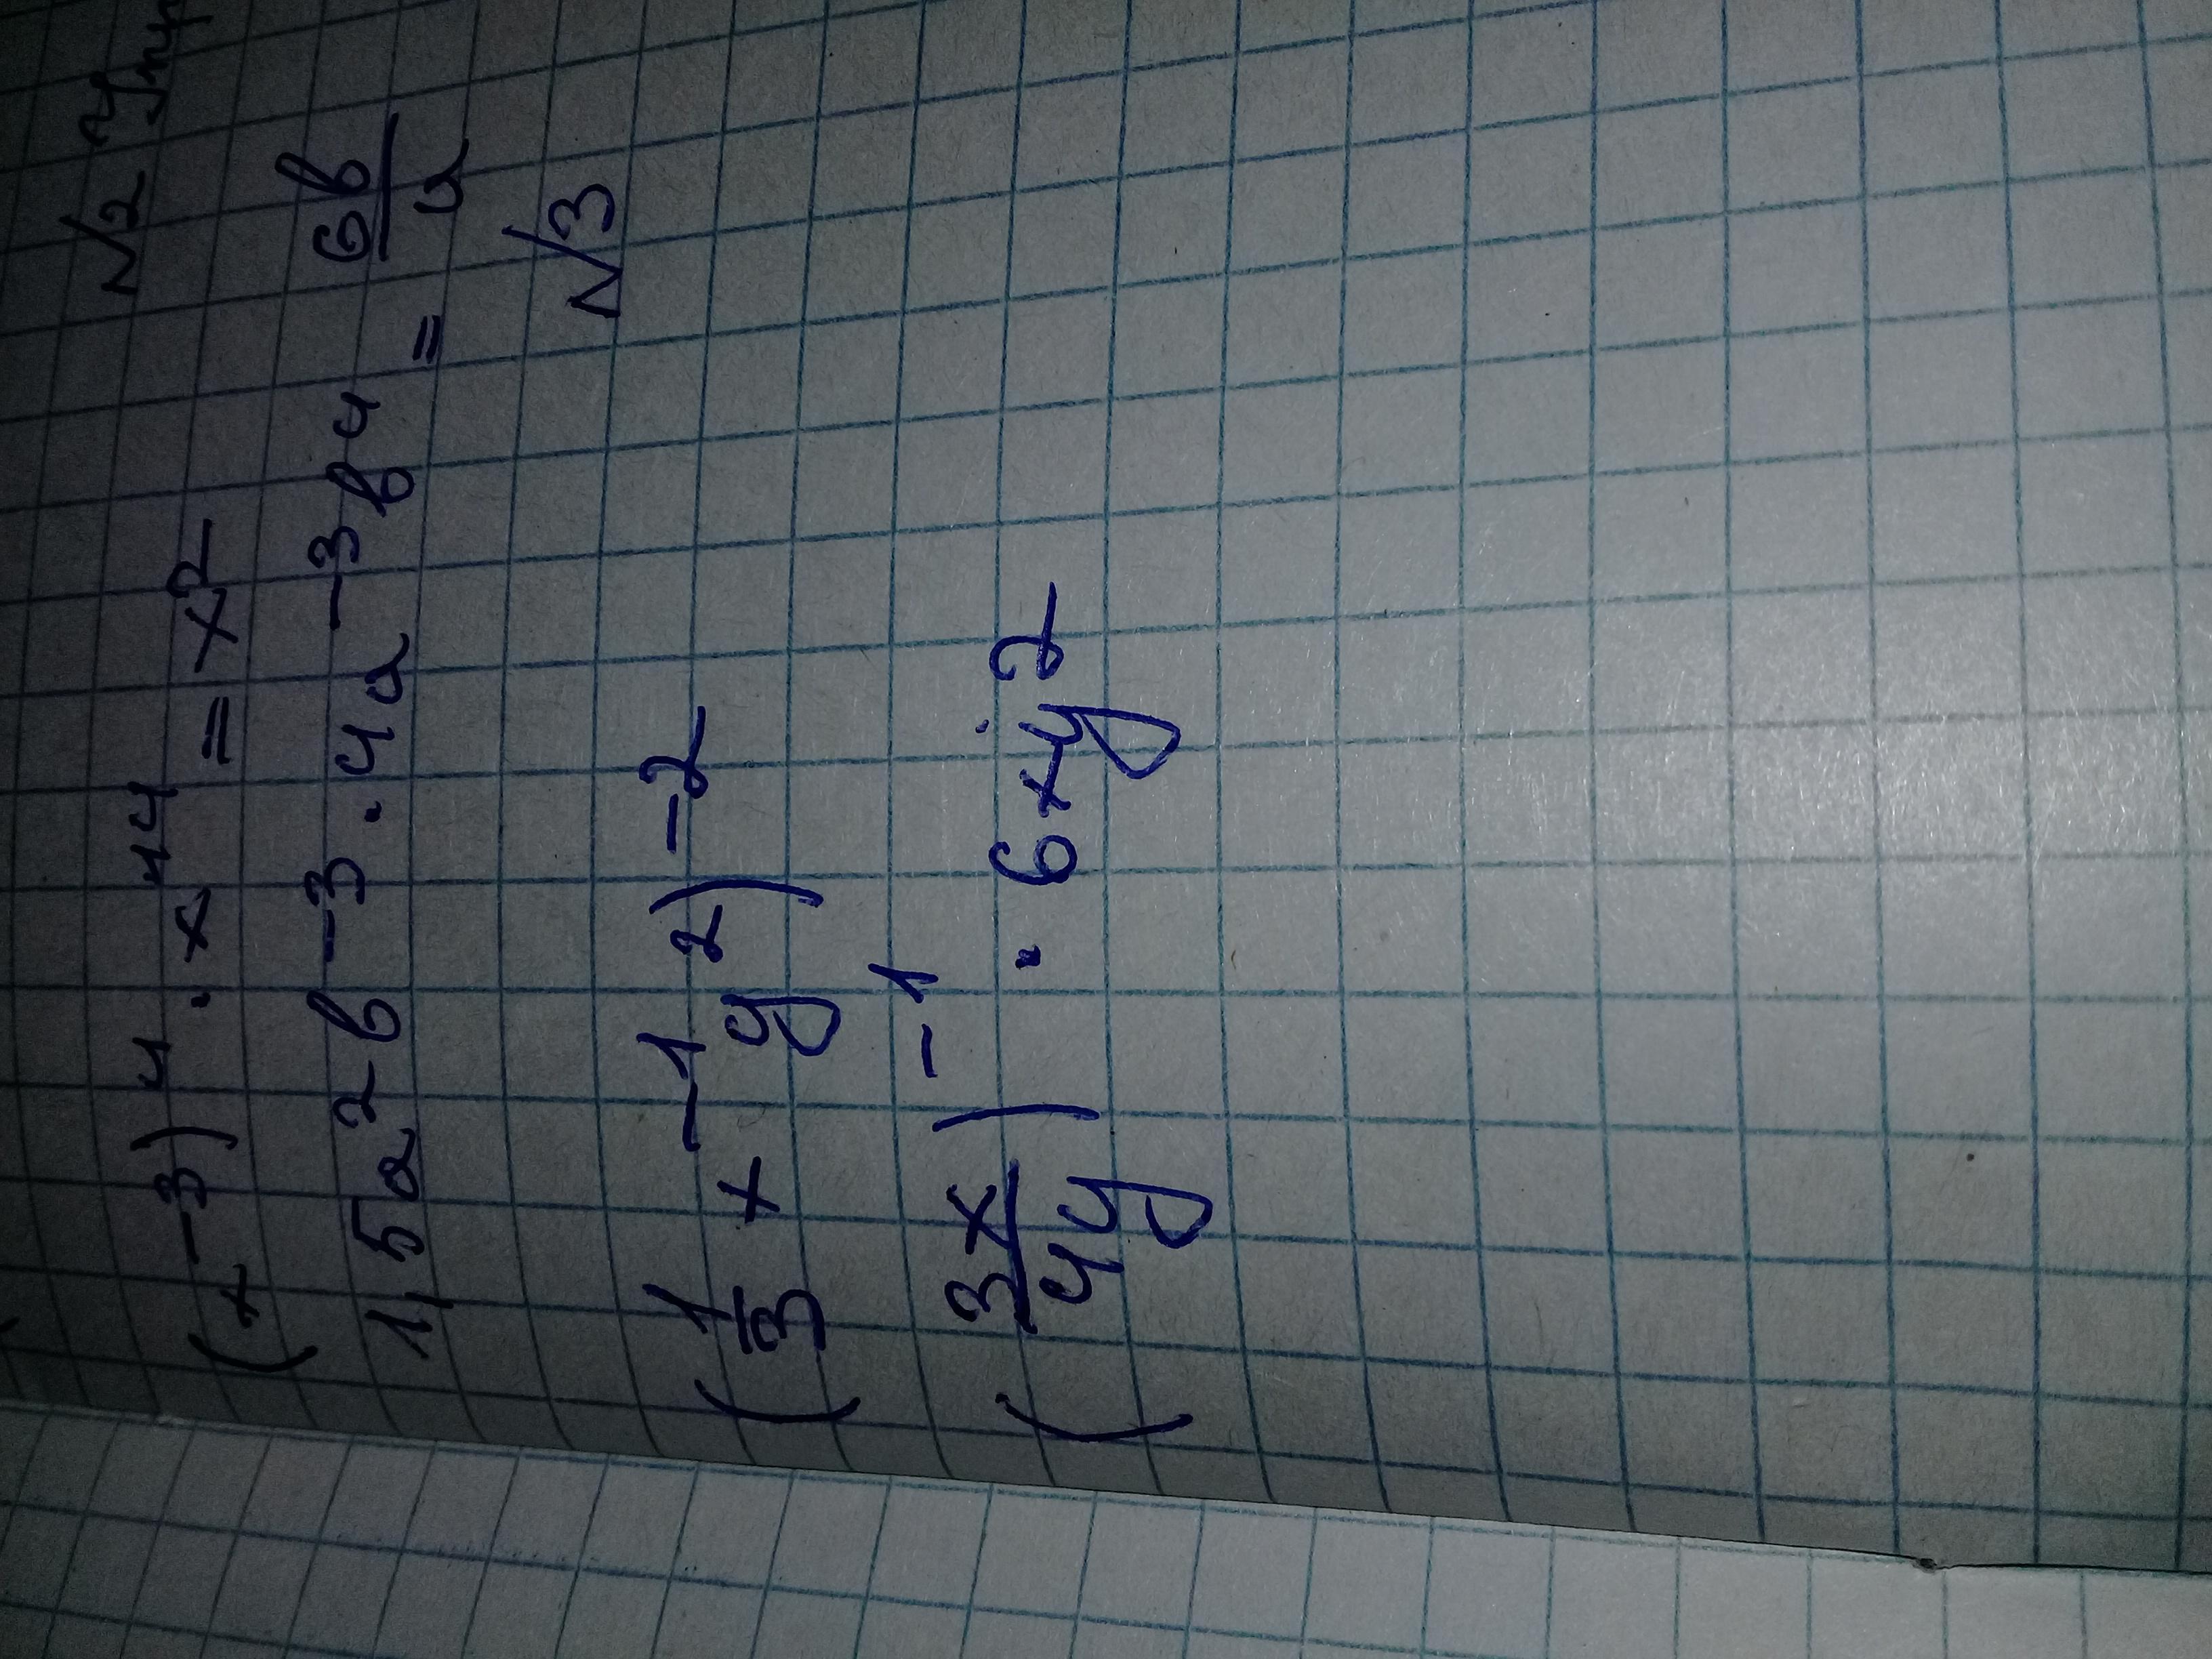 №2 Упр
(x⁻³)⁴ · x¹⁴ = x²
1,5a²b⁻³ · 4a⁻³b⁴ = 6b/a
№3
(1/3 x⁻¹ y²)⁻²
(3x/4y)⁻¹ · 6xy²